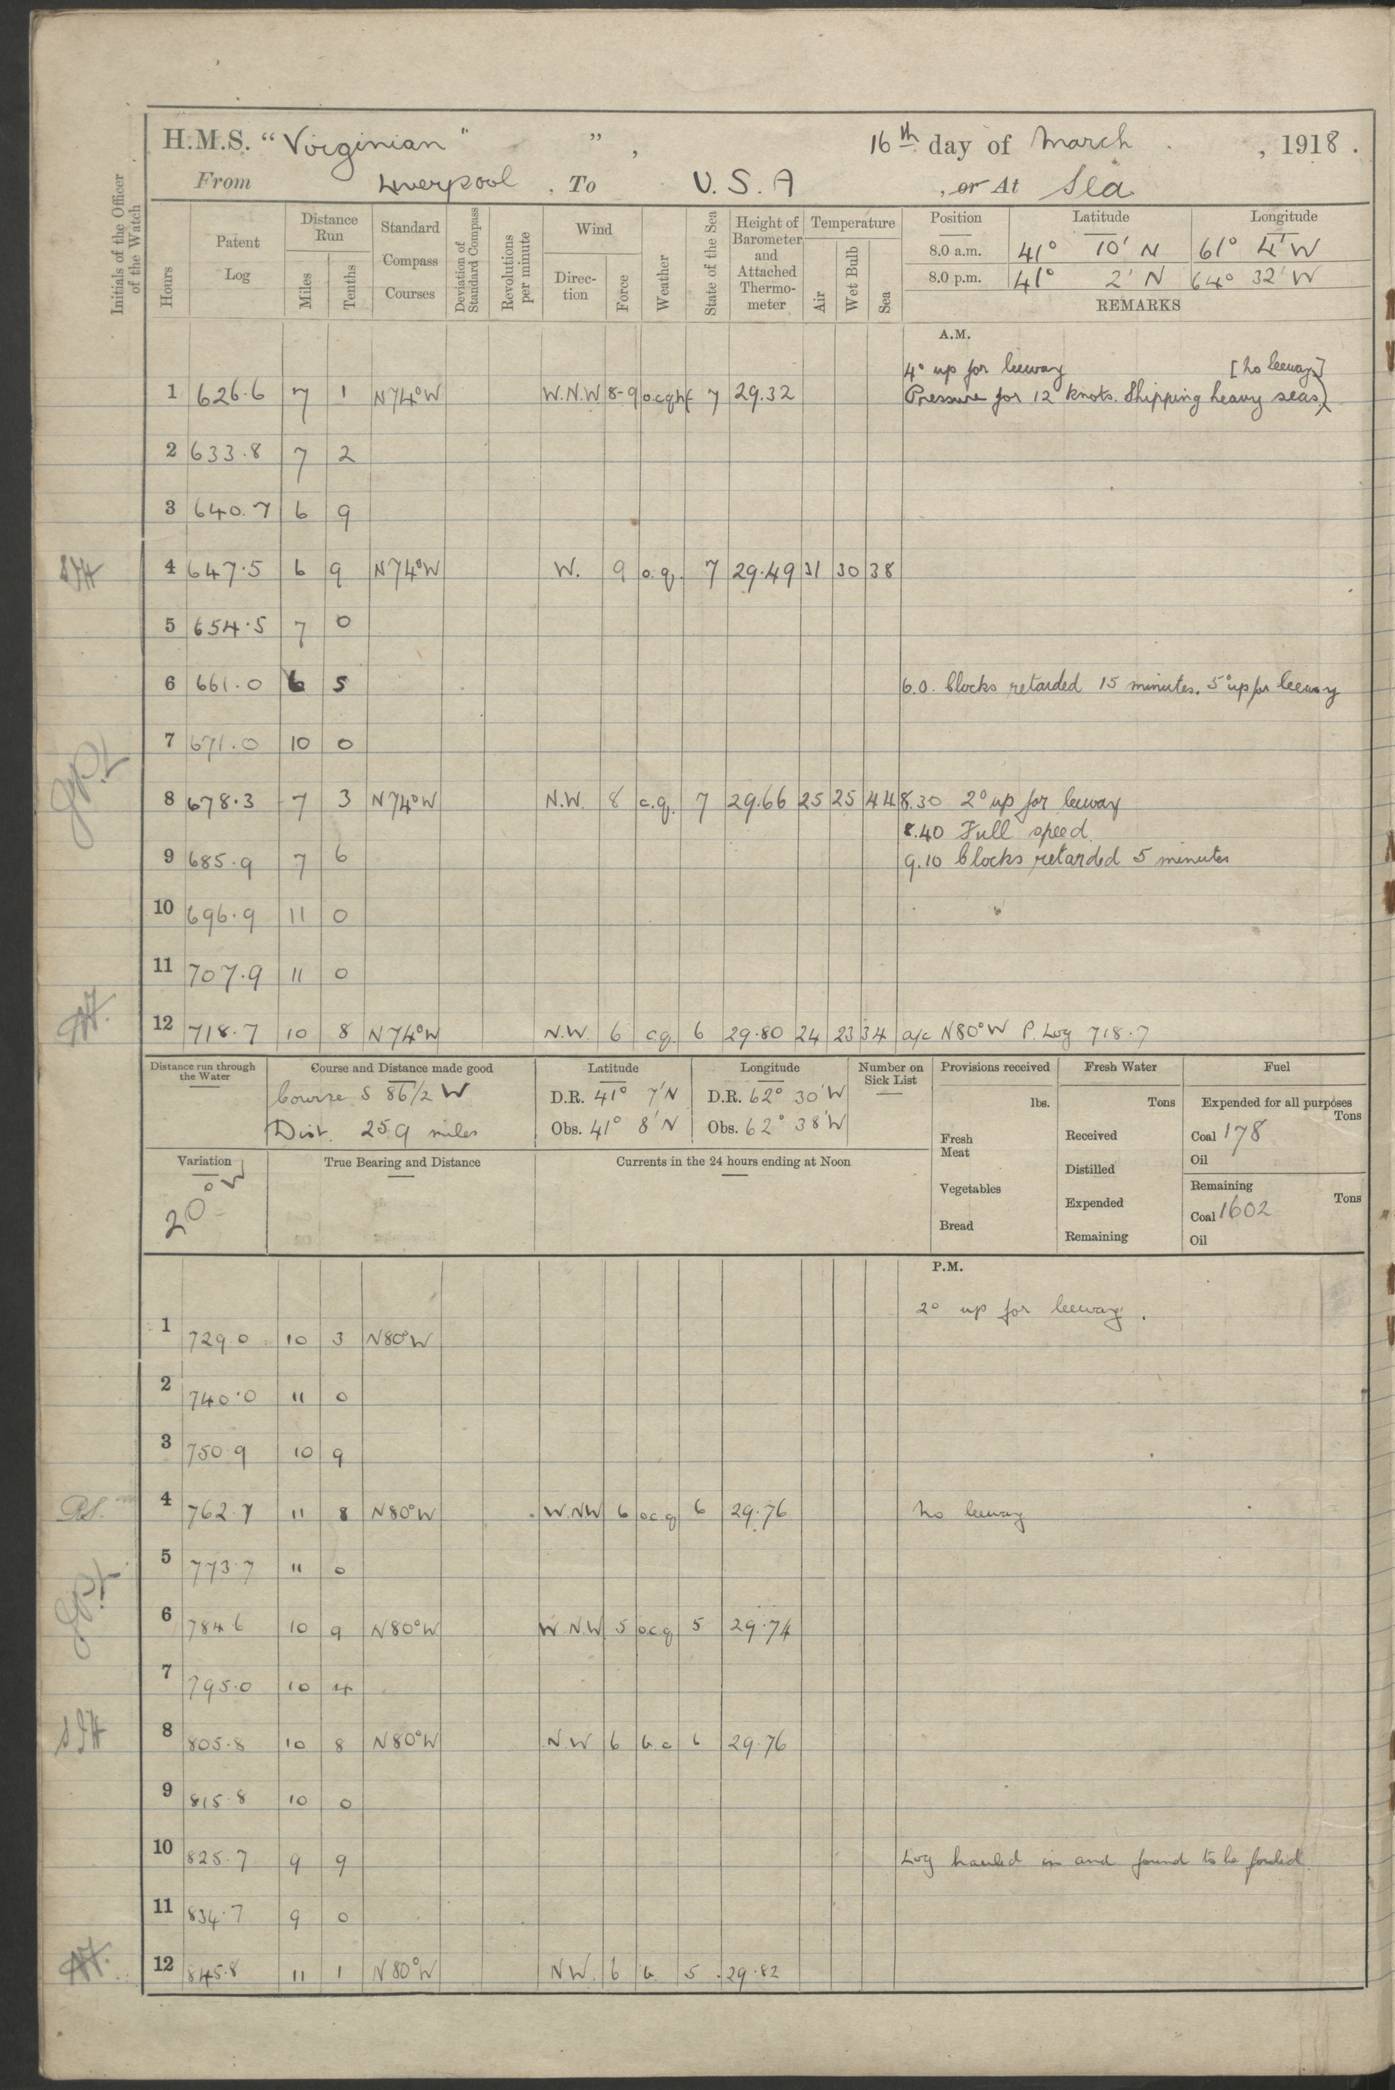 H.M.S. “Virginian” ”, 16th day of March, 1918.
From Liverpool, To U.S.A, or At Sea
Initials of the Officer of the Watch
Hours
Patent Log
Distance Run
Miles
Tenths
Standard Compass Courses
Deviation of Standard Compass
Revolutions per minute
Wind
Direc-tion
Force
Weather
State of the Sea
Height of Barometer and Attached Thermo-meter
Temperature
Air
Wet Bulb
Sea
Position Latitude Longitude
8.0 a.m. 41° 10' N 61° 4' W
8.0 p.m. 41° 2' N 64° 32' W
REMARKS
A.M.
4° up for leeway [no leeway]
1 626.6 7 1 N74°W W.N.W 8-9 7 29.32 Pressure for 12 knots. Shipping heavy seas)
2 633.8 7 2
3 640.7 6 9
4 647.5 6 9 N74°W W. 9 o.q. 7 29.49 31 30 38
5 654.5 7 0
6 661.0 6 5 6.0. Clocks retarded 15 minutes. 5° up for leeway
7 671.0 10 0
8 678.3 7 3 N74°W N.W. 8 c.q. 7 29.66 25 25 44 8.30 2° up for leeway
8.40 Full speed.
9 685.9 7 6 9.10 Clocks retarded 5 minutes
10 696.9 11 0
11 707.9 11 0
12 718.7 10 8 N74°W N.W. 6 c.q. 6 29.80 24 23 34 a/c N80°W P. Log 718.7
Distance run through the Water
Course and Distance made good
Course S 86½ W
Dist. 259 miles
Latitude
D.R. 41° 7' N
Obs. 41° 8' N
Longitude
D.R. 62° 30' W
Obs. 62° 38' W
Number on Sick List
Provisions received
lbs.
Fresh Meat
Vegetables
Bread
Fresh Water
Tons
Received
Distilled
Expended
Remaining
Fuel
Expended for all purposes
Tons
Coal 178
Oil
Remaining
Tons
Coal 1602
Oil
Variation
20° W
True Bearing and Distance
Currents in the 24 hours ending at Noon
P.M.
2° up for leeway.
1 729.0 10 3 N80°W
2 740.0 11 0
3 750.9 10 9
4 762.7 11 8 N80°W W.NW 6 o.c.q 6 29.76 No leeway
5 773.7 11 0
6 784.6 10 9 N80°W W.N.W 5 o.c.q 5 29.74
7 795.0 10 4
8 805.8 10 8 N80°W N.W 6 b.c 6 29.76
9 815.8 10 0
10 825.7 9 9 Log hauled in and found to be fouled.
11 834.7 9 0
12 845.8 11 1 N80°W N.W. 6 b. 5 29.82